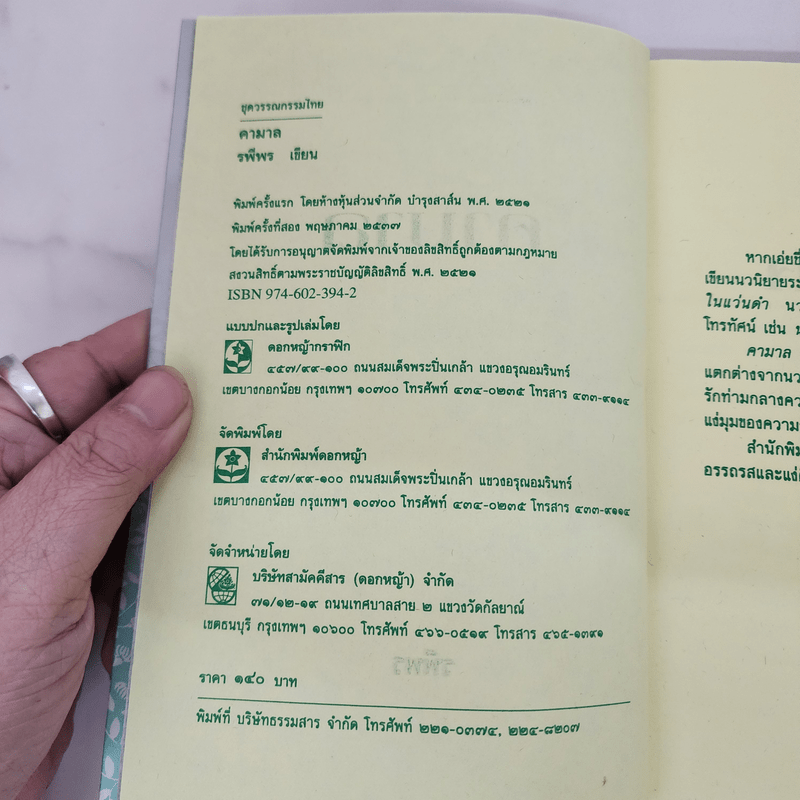 ชุดวรรณกรรมไทย
คามาล
รพีพร เขียน
พิมพ์ครั้งแรก โดยห้างหุ้นส่วนจำกัด บำรุงสาส์น พ.ศ. ๒๕๒๑
พิมพ์ครั้งที่สอง พฤษภาคม ๒๕๓๗
โดยได้รับการอนุญาตจัดพิมพ์จากเจ้าของลิขสิทธิ์ถูกต้องตามกฎหมาย
สงวนสิทธิ์ตามพระราชบัญญัติลิขสิทธิ์ พ.ศ. ๒๕๒๑
ISBN 974-602-394-2
แบบปกและรูปเล่มโดย
ดอกหญ้ากราฟิก
๔๕๗/๙๙-๑๐๐ ถนนสมเด็จพระปิ่นเกล้า แขวงอรุณอมรินทร์
เขตบางกอกน้อย กรุงเทพฯ ๑๐๗๐๐ โทรศัพท์ ๔๓๔-๐๒๓๕ โทรสาร ๔๓๓-๙๑๑๔
จัดพิมพ์โดย
สำนักพิมพ์ดอกหญ้า
๔๕๗/๙๙-๑๐๐ ถนนสมเด็จพระปิ่นเกล้า แขวงอรุณอมรินทร์
เขตบางกอกน้อย กรุงเทพฯ ๑๐๗๐๐ โทรศัพท์ ๔๓๔-๐๒๓๕ โทรสาร ๔๓๓-๙๑๑๔
จัดจำหน่ายโดย
บริษัทสามัคคีสาร (ดอกหญ้า) จำกัด
๗๑/๑๒-๑๙ ถนนเทศบาลสาย ๒ แขวงวัดกัลยาณ์
เขตธนบุรี กรุงเทพฯ ๑๐๖๐๐ โทรศัพท์ ๔๖๖-๐๕๑๙ โทรสาร ๔๖๕-๑๓๙๑
ราคา ๑๔๐ บาท
พิมพ์ที่ บริษัทธรรมสาร จำกัด โทรศัพท์ ๒๒๑-๐๓๗๔, ๒๒๔-๘๒๐๗
หากเอ่ยชื่
เขียนนวนิยายระ
ในแว่นดำ นว
โทรทัศน์ เช่น
คามาล
แตกต่างจากนว
รักท่ามกลางคว
แง่มุมของความ
สำนักพิม
อรรถรสและแง่